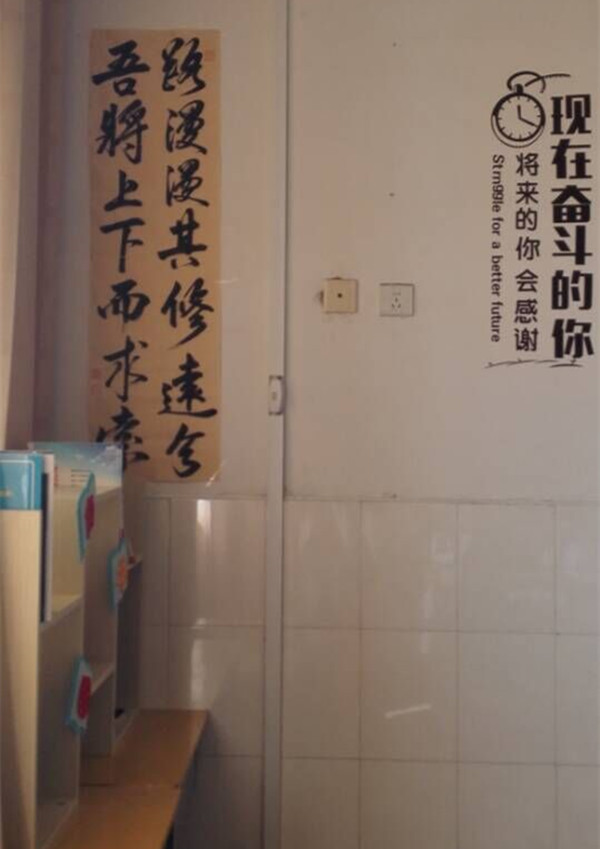 路漫漫其修遠兮
吾將上下而求索
将来的你会感谢
现在奋斗的你
Strn99le for a better future